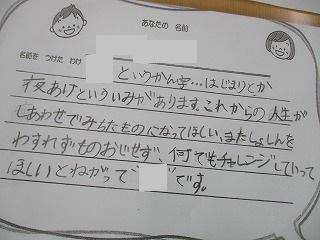 あなたの 名前
名前を つけた わけ
というかん字…はじまりとか
夜あけといういみがあります。これからの人生が
しあわせでみちたものになってほしい、またしょしんを
わすれずものおじせず、何でもチャレンジしていって
ほしいとねがって です。